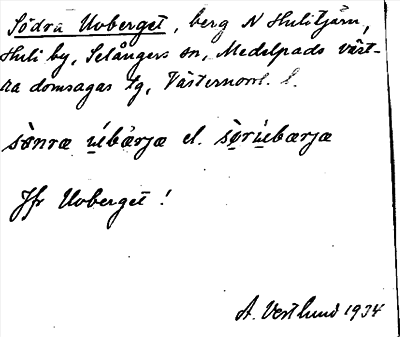 Södra Uvberget, berg N Hulitjärn,
Huli by, Selångers sn, Medelpads väst-
ra domsagas tg, Västernorrl. l.
sònræ ẁ́bærjæ el. sòrẁ́bærjæ
Jfr Uvberget!
A. Vestlund 1934